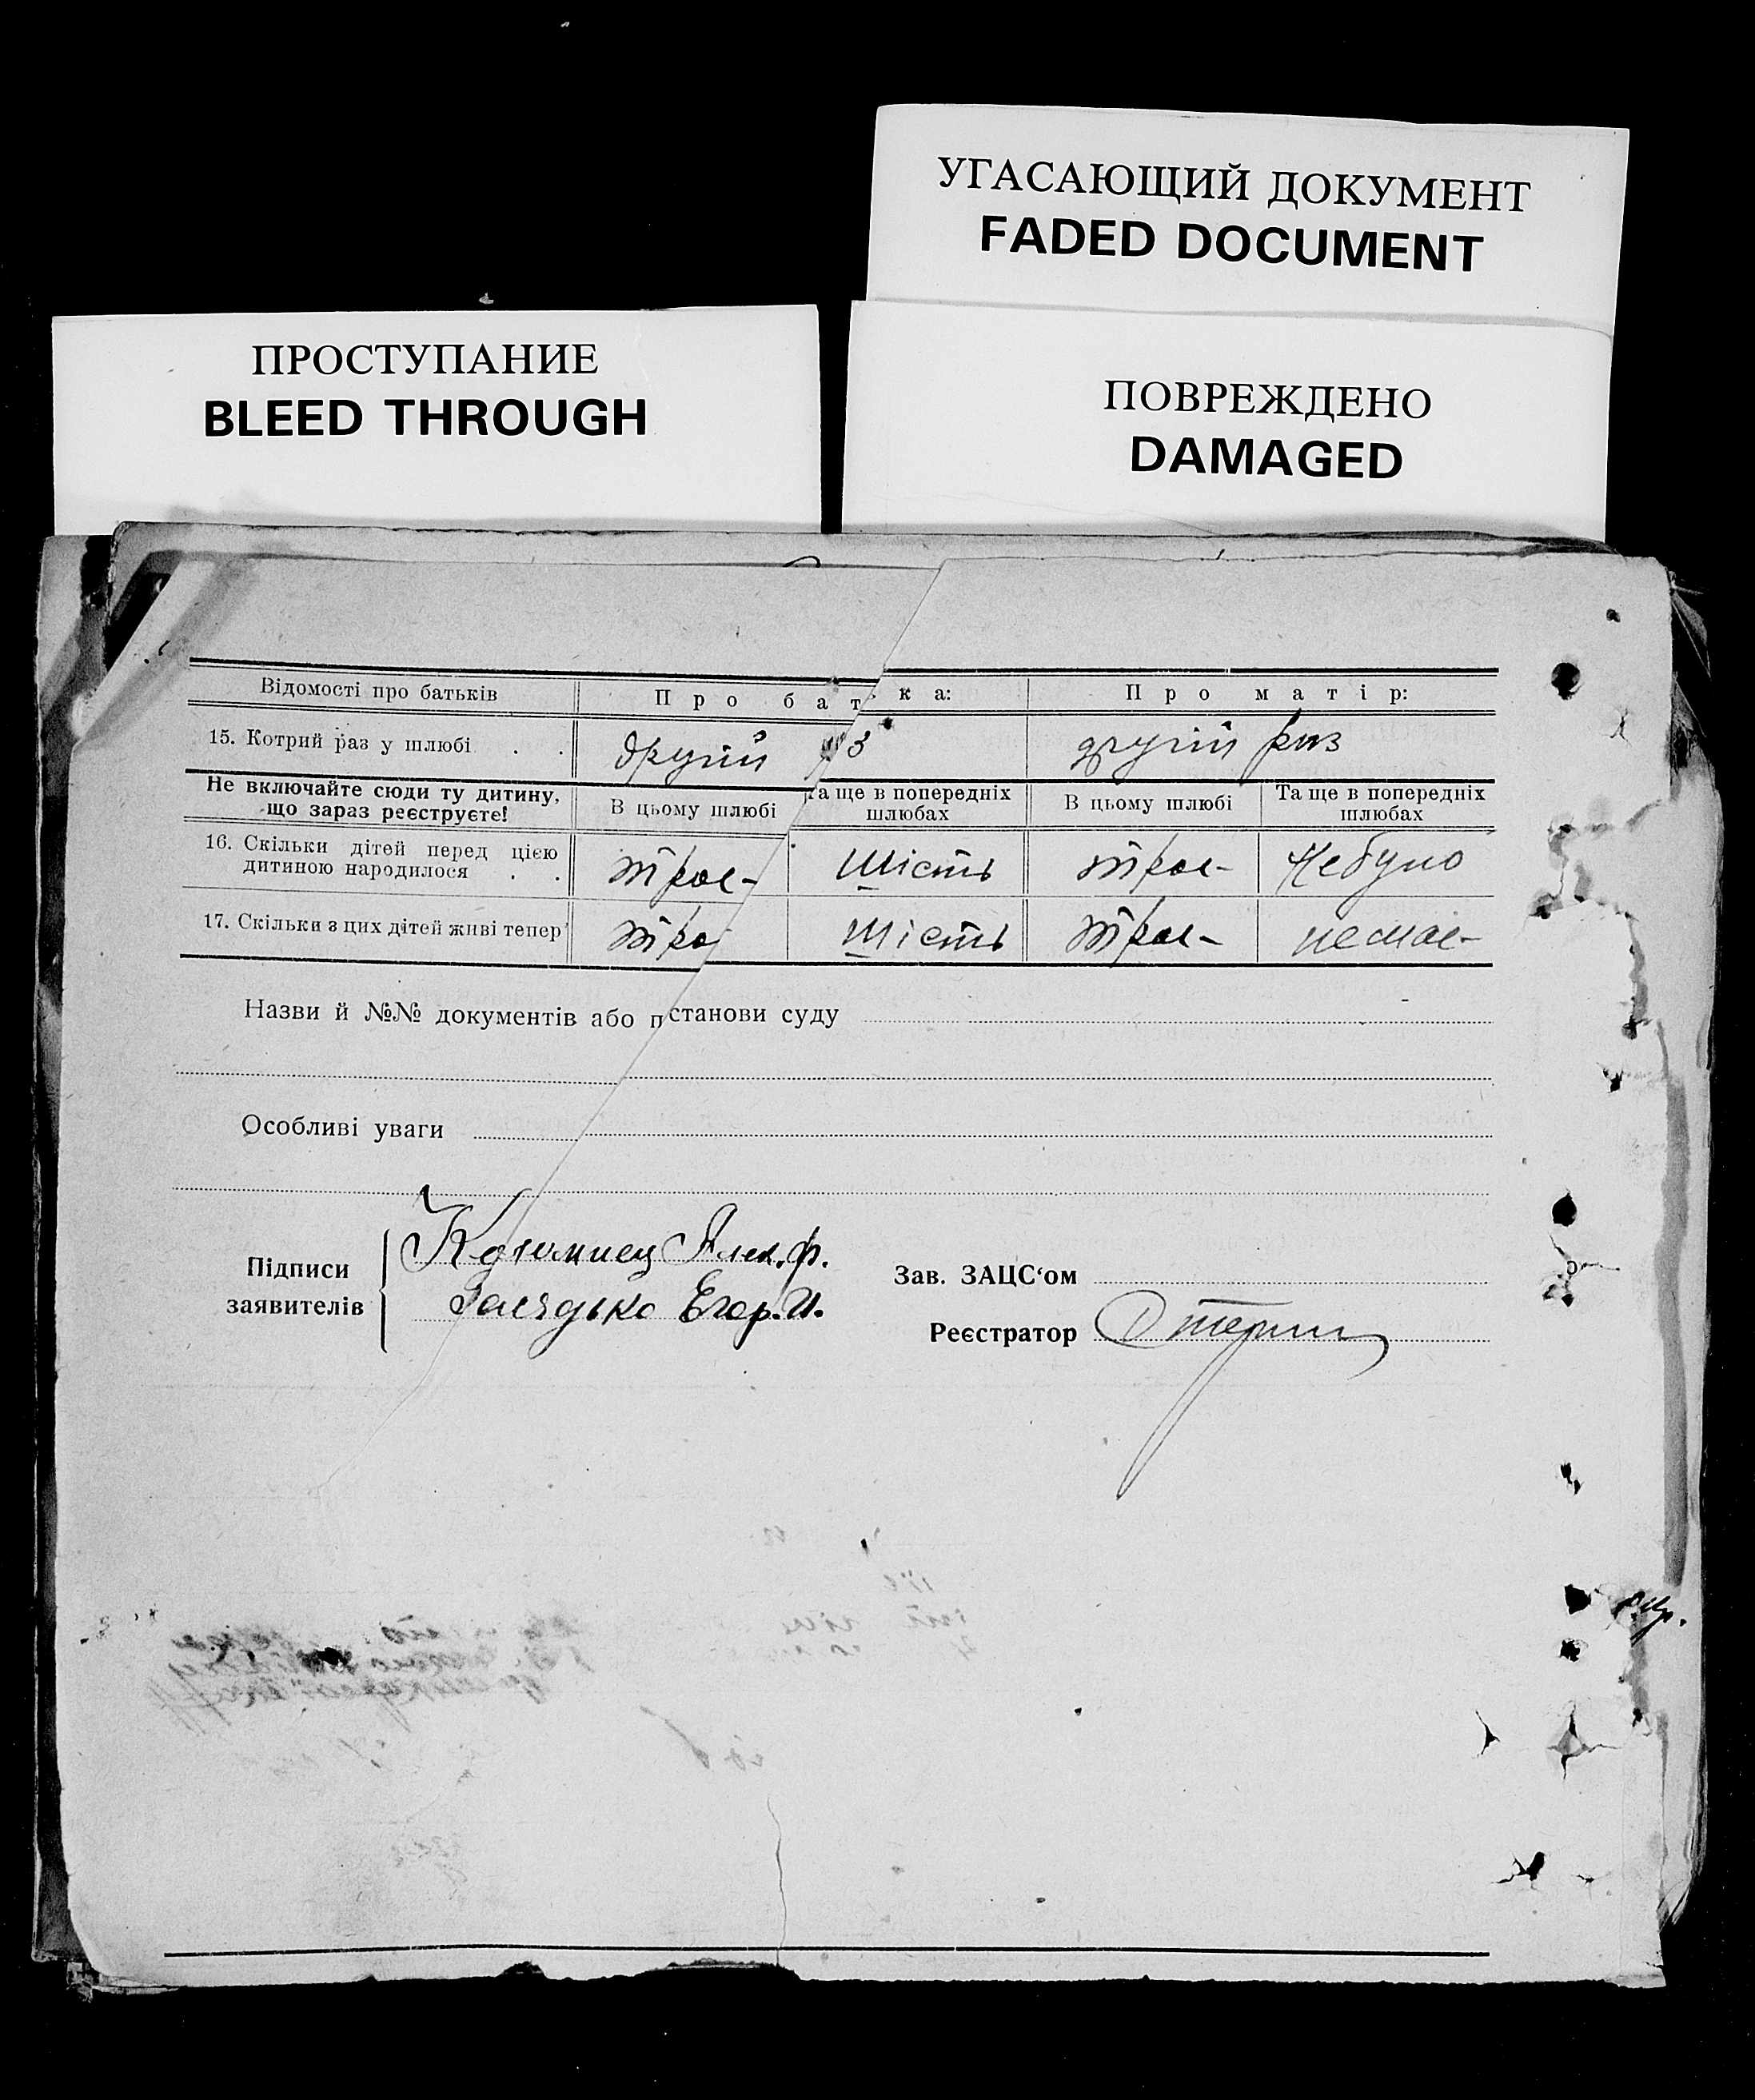 УГАСАЮЩИЙ ДОКУМЕНТ
FADED DOCUMENT
ПРОСТУПАНИЕ
BLEED THROUGH
ПОВРЕЖДЕНО
DAMAGED
Відомості про батьків Про батька: Про матір:
15. Котрий раз у шлюбі . . другий з другий раз
Не включайте сюди ту дитину, що зараз реєструєте! В цьому шлюбі Та ще в попередніх шлюбах В цьому шлюбі Та ще в попередніх шлюбах
16. Скільки дітей перед цією дитиною народилося . . трое- Шість трое- Не було
17. Скільки з цих дітей живі тепер тро Шість трое- немае-
Назви й №№ документів або п станови суду
Особливі уваги
Підписи заявителів
Коломиец Алек. Ф.
Егор. И.
Зав. ЗАЦС'ом
Реєстратор